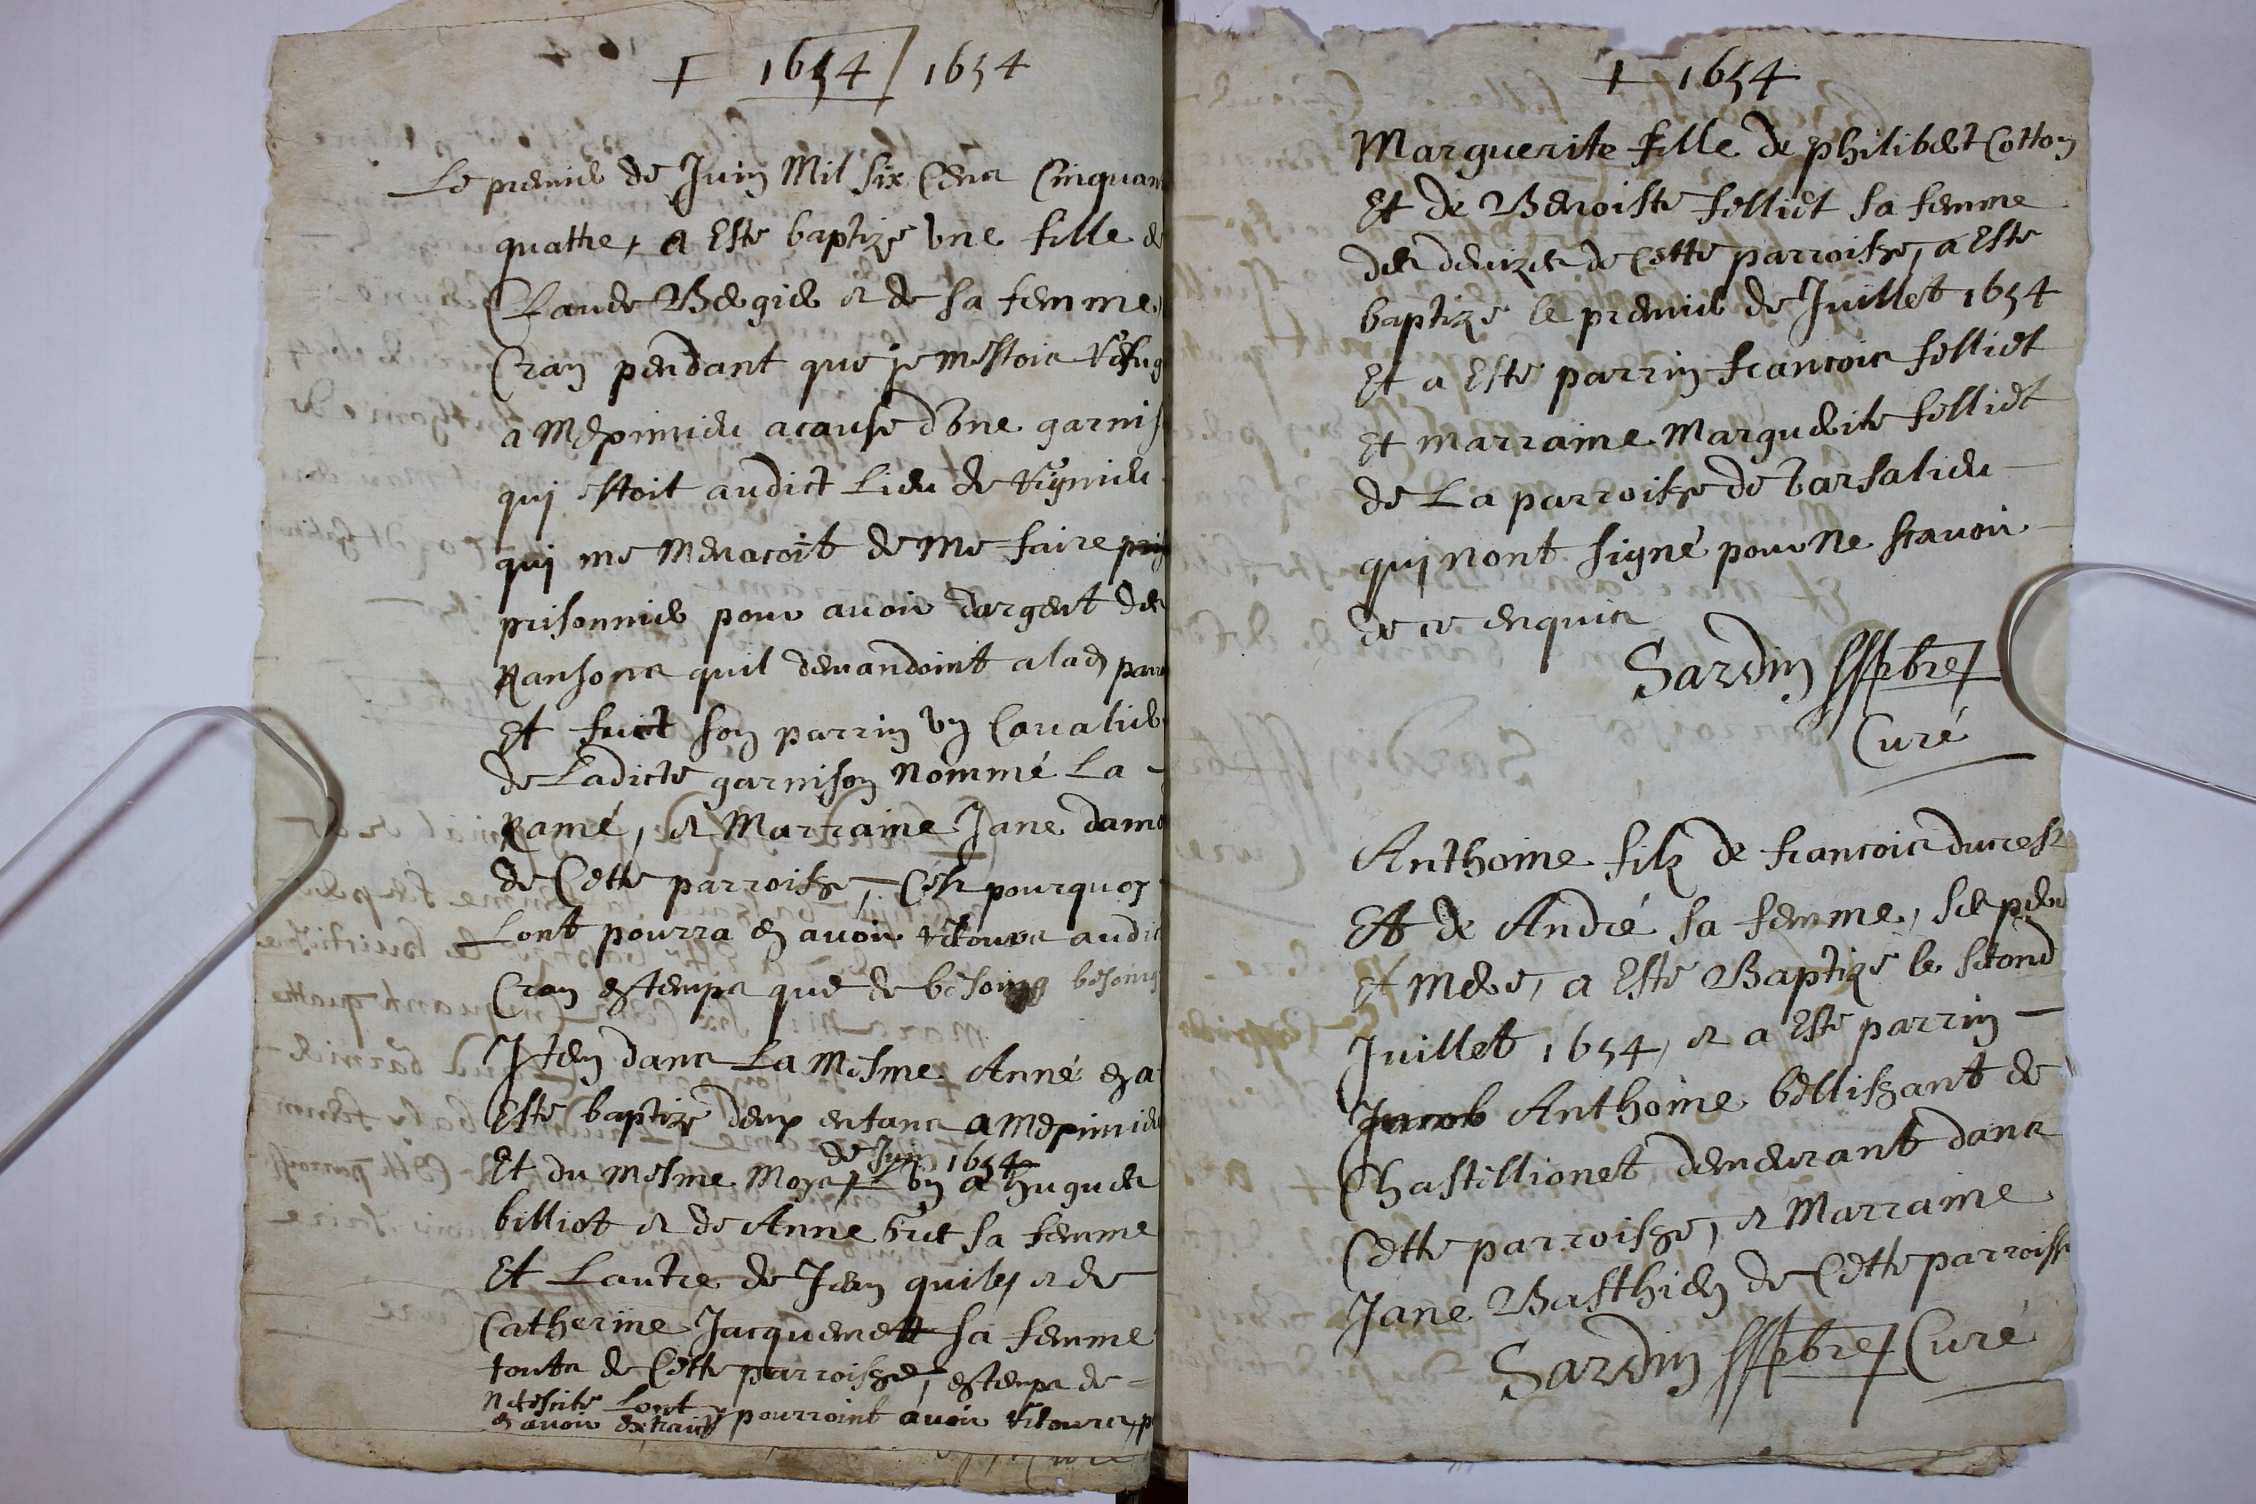 + 1654 / 1654
Le premier de Juin Mil six Cens Cinquan
quattre, a Este baptize vne fille de
Claude Bergier et de sa femme
Cran pendant que je mestois refug
a Mepinieu acause dvne garnis
quj estoit audict Lieu de
quj me Menacoit de Me faire
prisonnier pour avoir dargent des
Ransons quil demandoint a lad par
Et fuict son parrin vn Cavalier
de Ladicte garnison Nommé La
Ramé, et Marraine Jane dam
de Cette parroisse, Cest pourquoy
Lont pourra en avoir retours audic
Cran en temps que de besoing
Item dans La Mesme Anné en a
Este baptize deux enfans a Mepinieu
de Juin 1654
Et du mesme Moys vn a hugues
billiot et de Anne sa femme
Et Lautre de Jean et de
Catherine Jacquemett sa femme
touts de Cette parroisse, en temps de
Necesite Lont pourroint avoir retours, p
en avoir extraict
+ 1654
Marguerite fille de philibert Cotton
Et de Benoiste felliet sa femme
des de Cette parroisse, a Este
baptize le premier de Juillet 1654
Et a Este parrin francois felliet
Et marraine Marguerite felliet
de La parroisse de Varsalieu
quj nont signé pour Ne scavoir
de ce enquis
Sardin pbre
Curé
Anthoine filz de francois ducrest
Et de André sa femme, ses pere
et Mere, a Este Baptize le second
Juillet 1654, et a Este parrin
Anthoine bellissant de
Chastillionet demeurant dans
Cette parroisse, et Marraine
Jane Basthien de Cette parroisse
Sardin pbre Curé